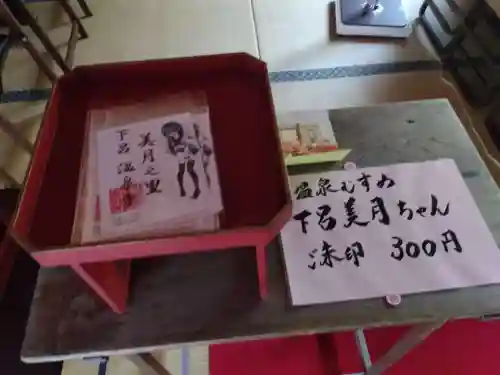 美月之里
下呂温泉
温泉むすめ
下呂美月ちゃん
朱印 300円